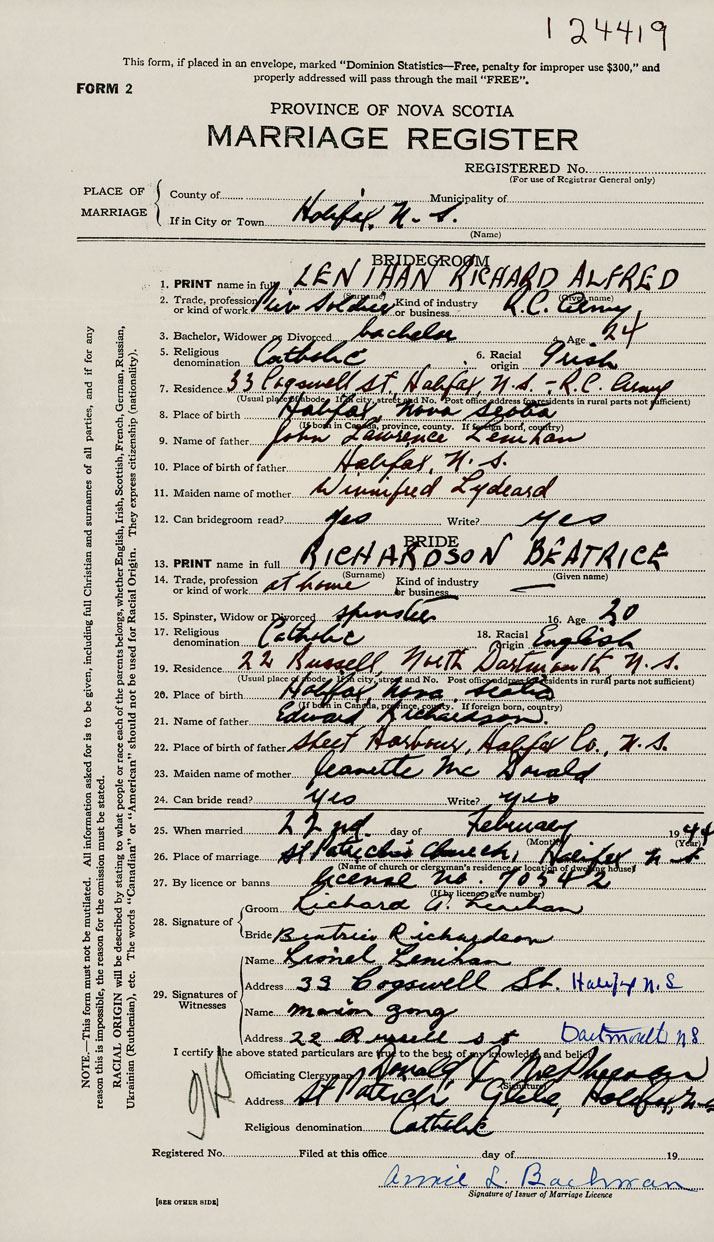 124419
This form, if placed in an envelope, marked "Dominion Statistics—Free, penalty for improper use $300," and
properly addressed will pass through the mail "FREE".
FORM 2
PROVINCE OF NOVA SCOTIA
MARRIAGE REGISTER
REGISTERED No.
(For use of Registrar General only)
PLACE OF MARRIAGE
County of Municipality of
If in City or Town Halifax, N. S.
(Name)
BRIDEGROOM
1. PRINT name in full LENIHAN RICHARD ALFRED
(Surname) (Given name)
2. Trade, profession or kind of work Soldier Kind of industry or business R.C. Army
3. Bachelor, Widower or Divorced bachelor 4. Age 24
5. Religious denomination Catholic 6. Racial origin Irish
7. Residence 33 Cogswell St. Halifax, N.S. - R.C. Army
(Usual place of abode. If in city, street and No. Post office address for residents in rural parts not sufficient)
8. Place of birth Halifax, Nova Scotia
(If born in Canada, province, county. If foreign born, country)
9. Name of father John Lawrence Lenihan
10. Place of birth of father Halifax, N. S.
11. Maiden name of mother Winnifred Lydeard
12. Can bridegroom read? yes Write? yes
BRIDE
13. PRINT name in full RICHARDSON BEATRICE
(Surname) (Given name)
14. Trade, profession or kind of work at home Kind of industry or business —
15. Spinster, Widow or Divorced spinster 16. Age 20
17. Religious denomination Catholic 18. Racial origin English
19. Residence 22 Russell, North Dartmouth N. S.
(Usual place of abode. If in city, street and No. Post office address for residents in rural parts not sufficient)
20. Place of birth Halifax, Nova Scotia
(If born in Canada, province, county. If foreign born, country)
21. Name of father Edward Richardson.
22. Place of birth of father Sheet Harbour, Halifax Co., N. S.
23. Maiden name of mother Jeanette Mc Donald
24. Can bride read? yes Write? yes
25. When married 22nd day of February 1944
(Month) (Year)
26. Place of marriage St Patrick's Church, Halifax N. S
(Name of church or clergyman's residence or location of dwelling house)
27. By licence or banns license no. 70542
(If by licence, give number)
28. Signature of
Groom Richard A. Lenihan
Bride Beatrice Richardson
29. Signatures of Witnesses
Name Lionel Lenihan
Address 33 Cogswell St. Halifax N. S
Name Marion
Address 22 Russell st Dartmouth NS
I certify the above stated particulars are true to the best of my knowledge and belief
Officiating Clergyman
(Signature)
Address St Patrick's Glebe, Halifax, N.S
Religious denomination Catholic
Registered No. Filed at this office day of 19
Annie L. Bachman
Signature of Issuer of Marriage Licence
[SEE OTHER SIDE]
NOTE.—This form must not be mutilated. All information asked for is to be given, including full Christian and surnames of all parties, and if for any
reason this is impossible, the reason for the omission must be stated.
RACIAL ORIGIN will be described by stating to what people or race each of the parents belongs, whether English, Irish, Scottish, French, German, Russian,
Ukrainian (Ruthenian), etc. The words "Canadian" or "American" should not be used for Racial Origin. They express citizenship (nationality).